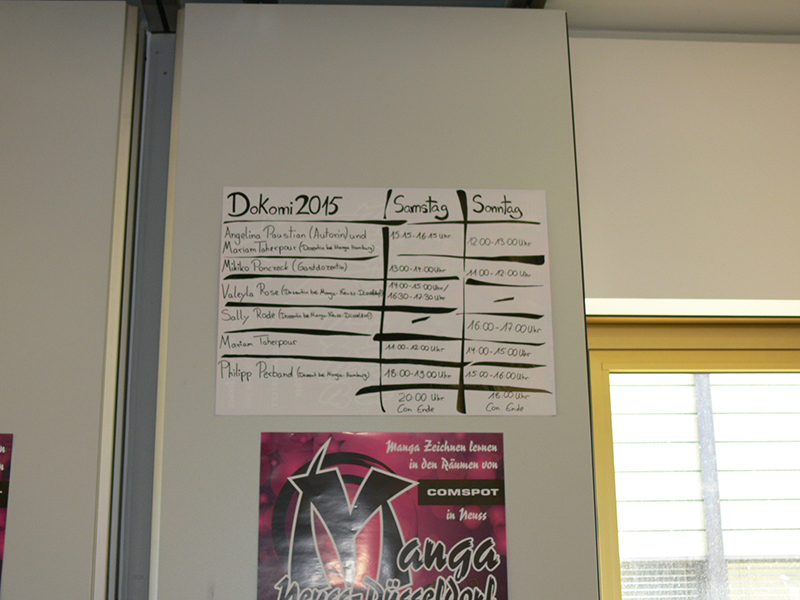 DoKomi 2015 Samstag Sonntag
Angelina Paustian (Autorin) und
Mariam Taherpour (Dozentin bei Manga Hamburg) 15:15-16:15 Uhr 12:00-13:00 Uhr
Mikiko Ponczeck (Gastdozentin) 13:00-14:00 Uhr 11:00-12:00 Uhr
Valeyla Rose (Dozentin bei Manga-Neuss-Düsseldorf) 14:00-15:00 Uhr/ -
16:30-17:30 Uhr
Sally Rode (Dozentin bei Manga-Neuss-Düsseldorf) - 16:00-17:00 Uhr
Mariam Taherpour 11:00-12:00 Uhr 14:00-15:00 Uhr
Philipp Pexband (Dozent bei Manga-Hamburg) 18:00-19:00 Uhr 15:00-16:00 Uhr
20:00 Uhr 18:00 Uhr
Con Ende Con Ende
Manga Zeichnen lernen
in den Räumen von
COMSPOT
in Neuss
Manga
Neuss-Düsseldorf